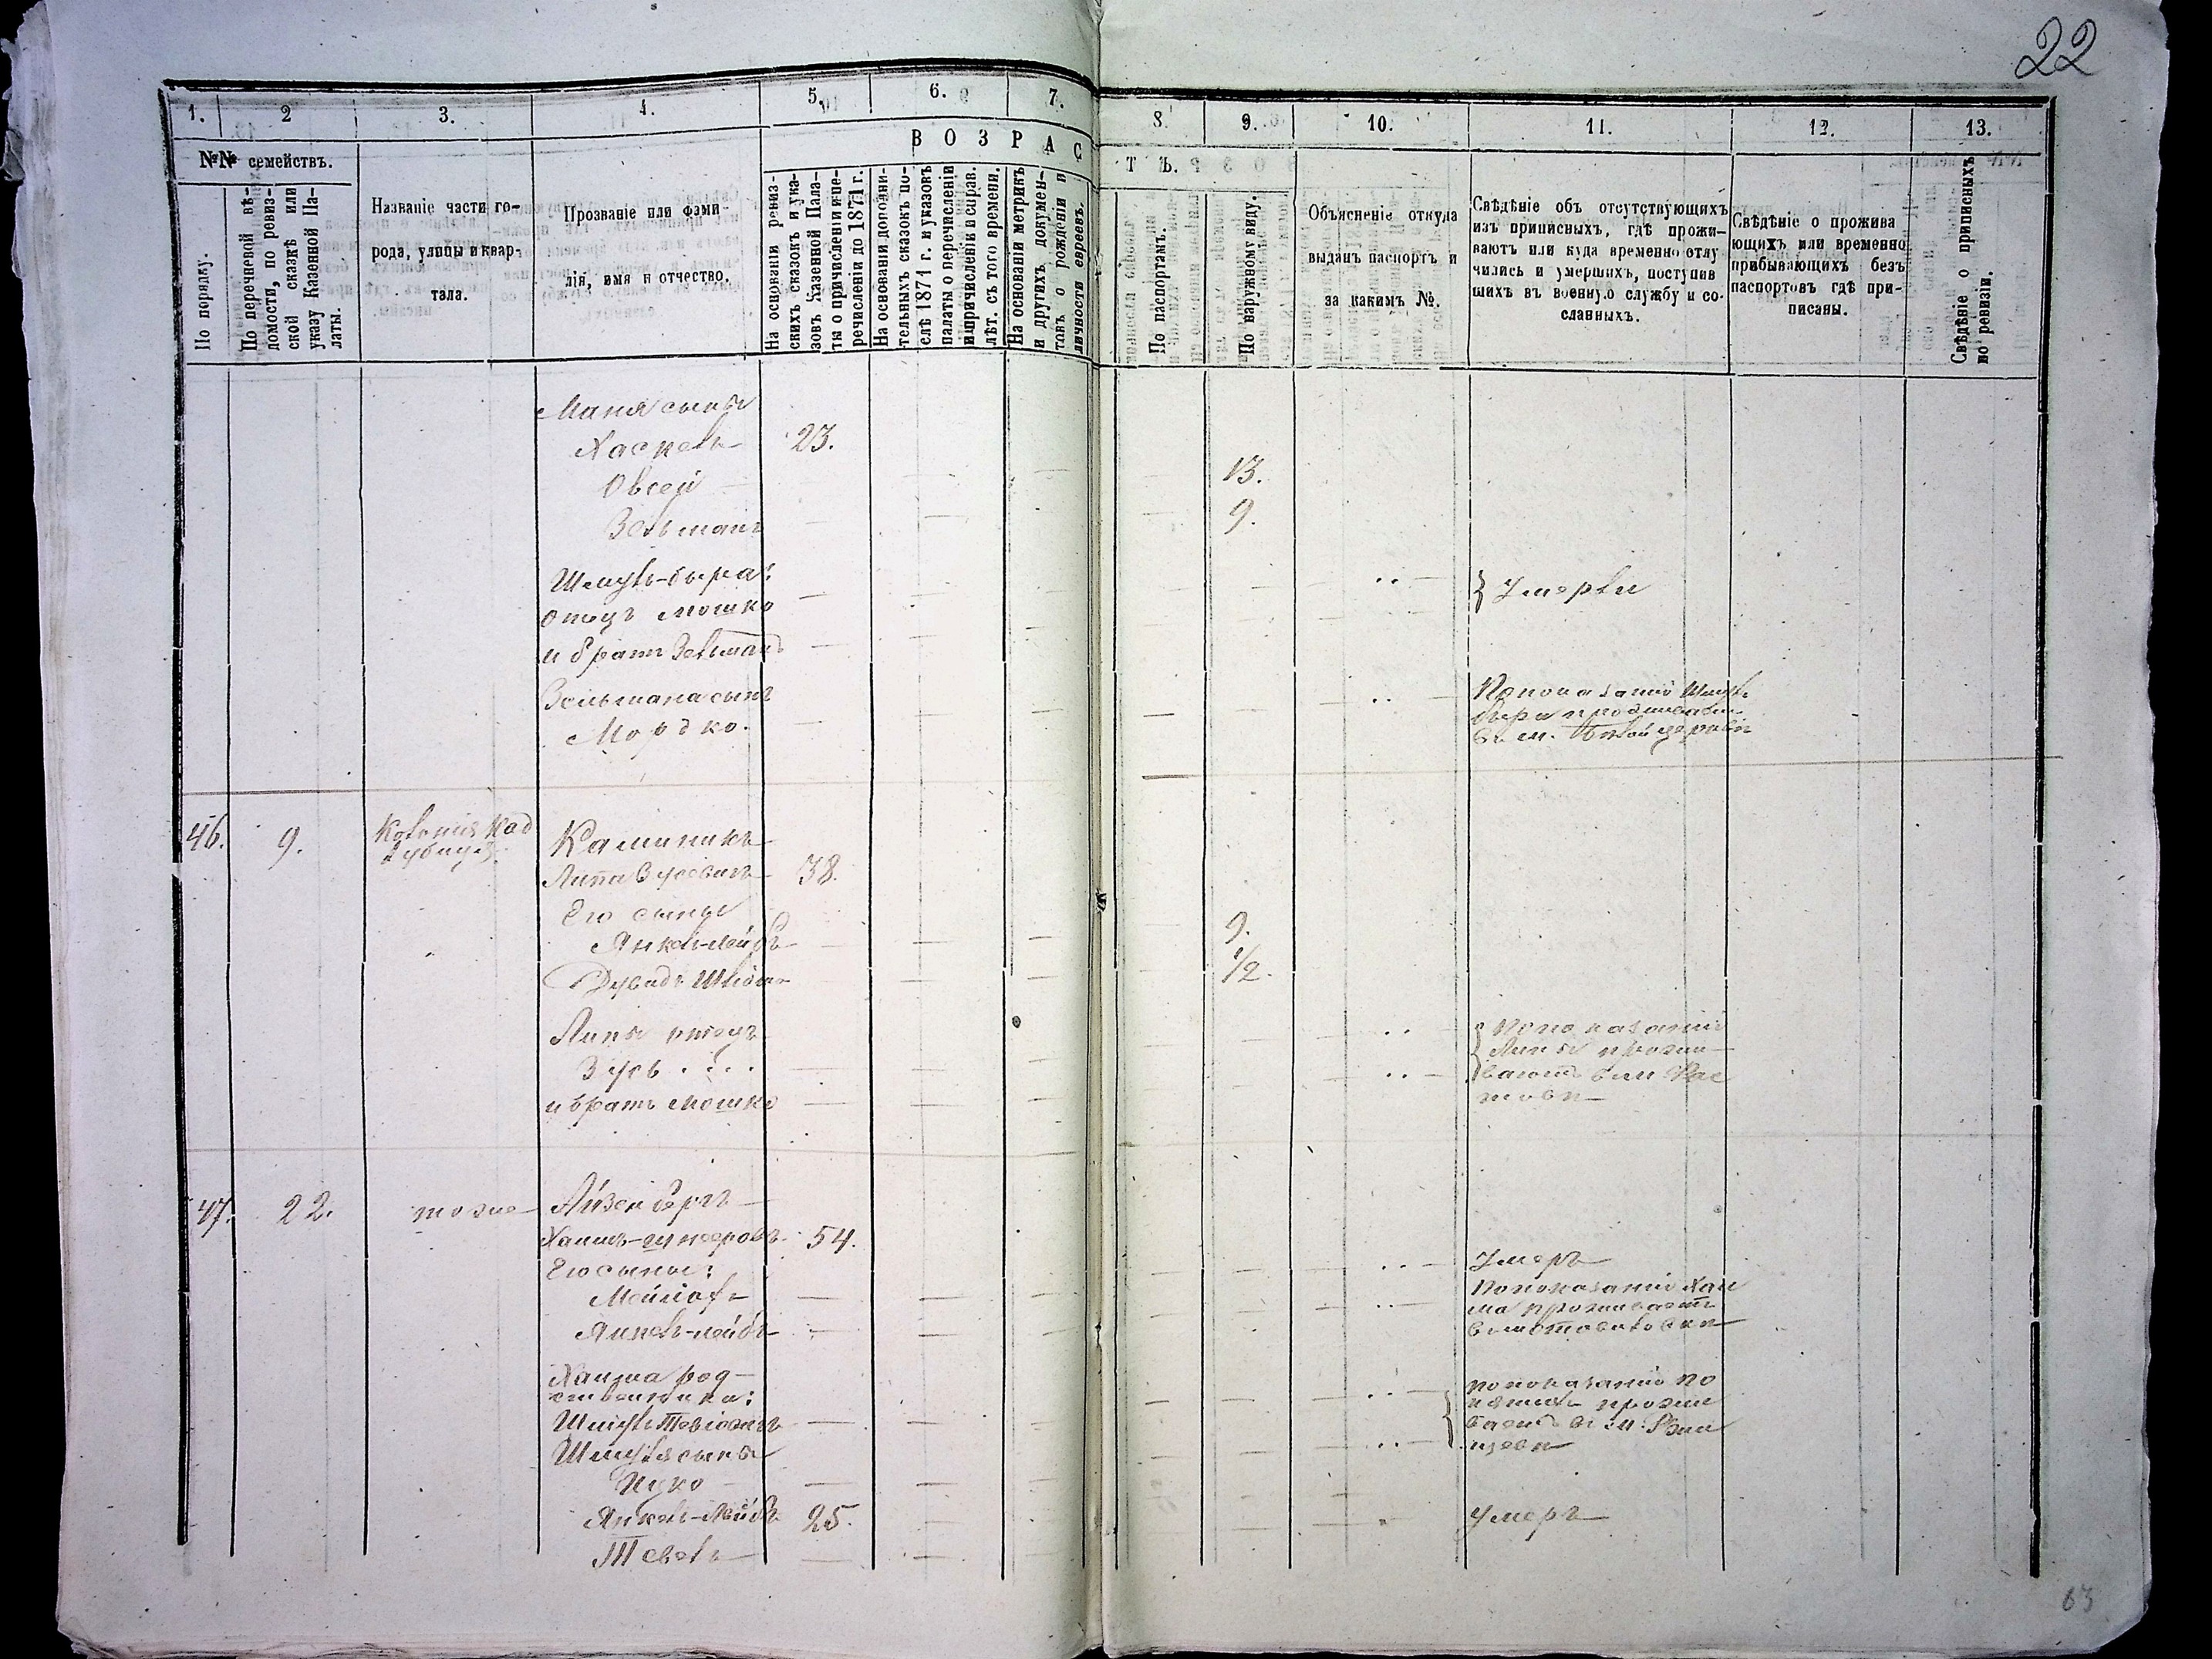 22
1. 2 3. 4. 5. 6. 7. 8. 9. 10. 11. 12. 13.
ВОЗРАСТЪ.
№№ семействъ.
По порядку.
По перечневой вѣ-
домости, по ревиз-
ской сказкѣ или
указу Казенной Па-
латы.
Названіе части го-
рода, улицы и квар-
тала.
Прозваніе или фами-
лія, имя и отчество.
На основаніи ревиз-
скихъ сказокъ и ука-
зовъ Казенной Пала-
ты о причисленіи и пе-
речисленіи до 1871 г.
На основаніи дополни-
тельныхъ сказокъ по-
слѣ 1871 г. и указовъ
палаты о перечисленіи
и причисленіи и справ.
лѣт. съ того времени.
На основаніи метрикъ
и другихъ докумен-
товъ о рожденіи и
личности евреевъ.
По паспортамъ.
По наружному виду.
Объясненіе откуда
выданъ паспортъ и
за какимъ №.
Свѣдѣніе объ отсутствующихъ
изъ приписныхъ, гдѣ прожи-
ваютъ или куда временно отлу
чились и умершихъ, поступив
шихъ въ военную службу и со-
сланныхъ.
Свѣдѣніе о прожива
ющихъ или временно
прибывающихъ безъ
паспортовъ гдѣ при-
писаны.
Свѣдѣніе о приписныхъ
по ревизіи.
Маня сыны
Хаскель 23.
Овсей 13.
Зельманъ 9.
Шмуль-бера:
отецъ Мошко
Умерли
и братъ Зельманъ
Зельмана сынъ
Мордко.
По показанію Шмуль
бера проживаетъ
въ м. Бѣлой церкви
46. 9. Каминикъ
Липа Зусевичъ 38.
Его сыны
Янкель-Лейбъ 9.
Дувидъ 1/2.
Липы отецъ
Зусь
и братъ Мошко
По показанію
Липы прожи-
ваютъ въ м. Рас
товѣ
47. 22. тоже Айзенбергъ
Хаимъ 54.
Его сыны:
Умеръ
Янкель-лейбъ
По показанію Хаи
ма проживаетъ
Хаима род-
ственники:
Шмуль Тевіовичъ
Шмуля сыны
Ицко
по показанію
проживаетъ въ м. Ржи
щевѣ
Янкель-Лейбъ 25. Умеръ
Тевель
63